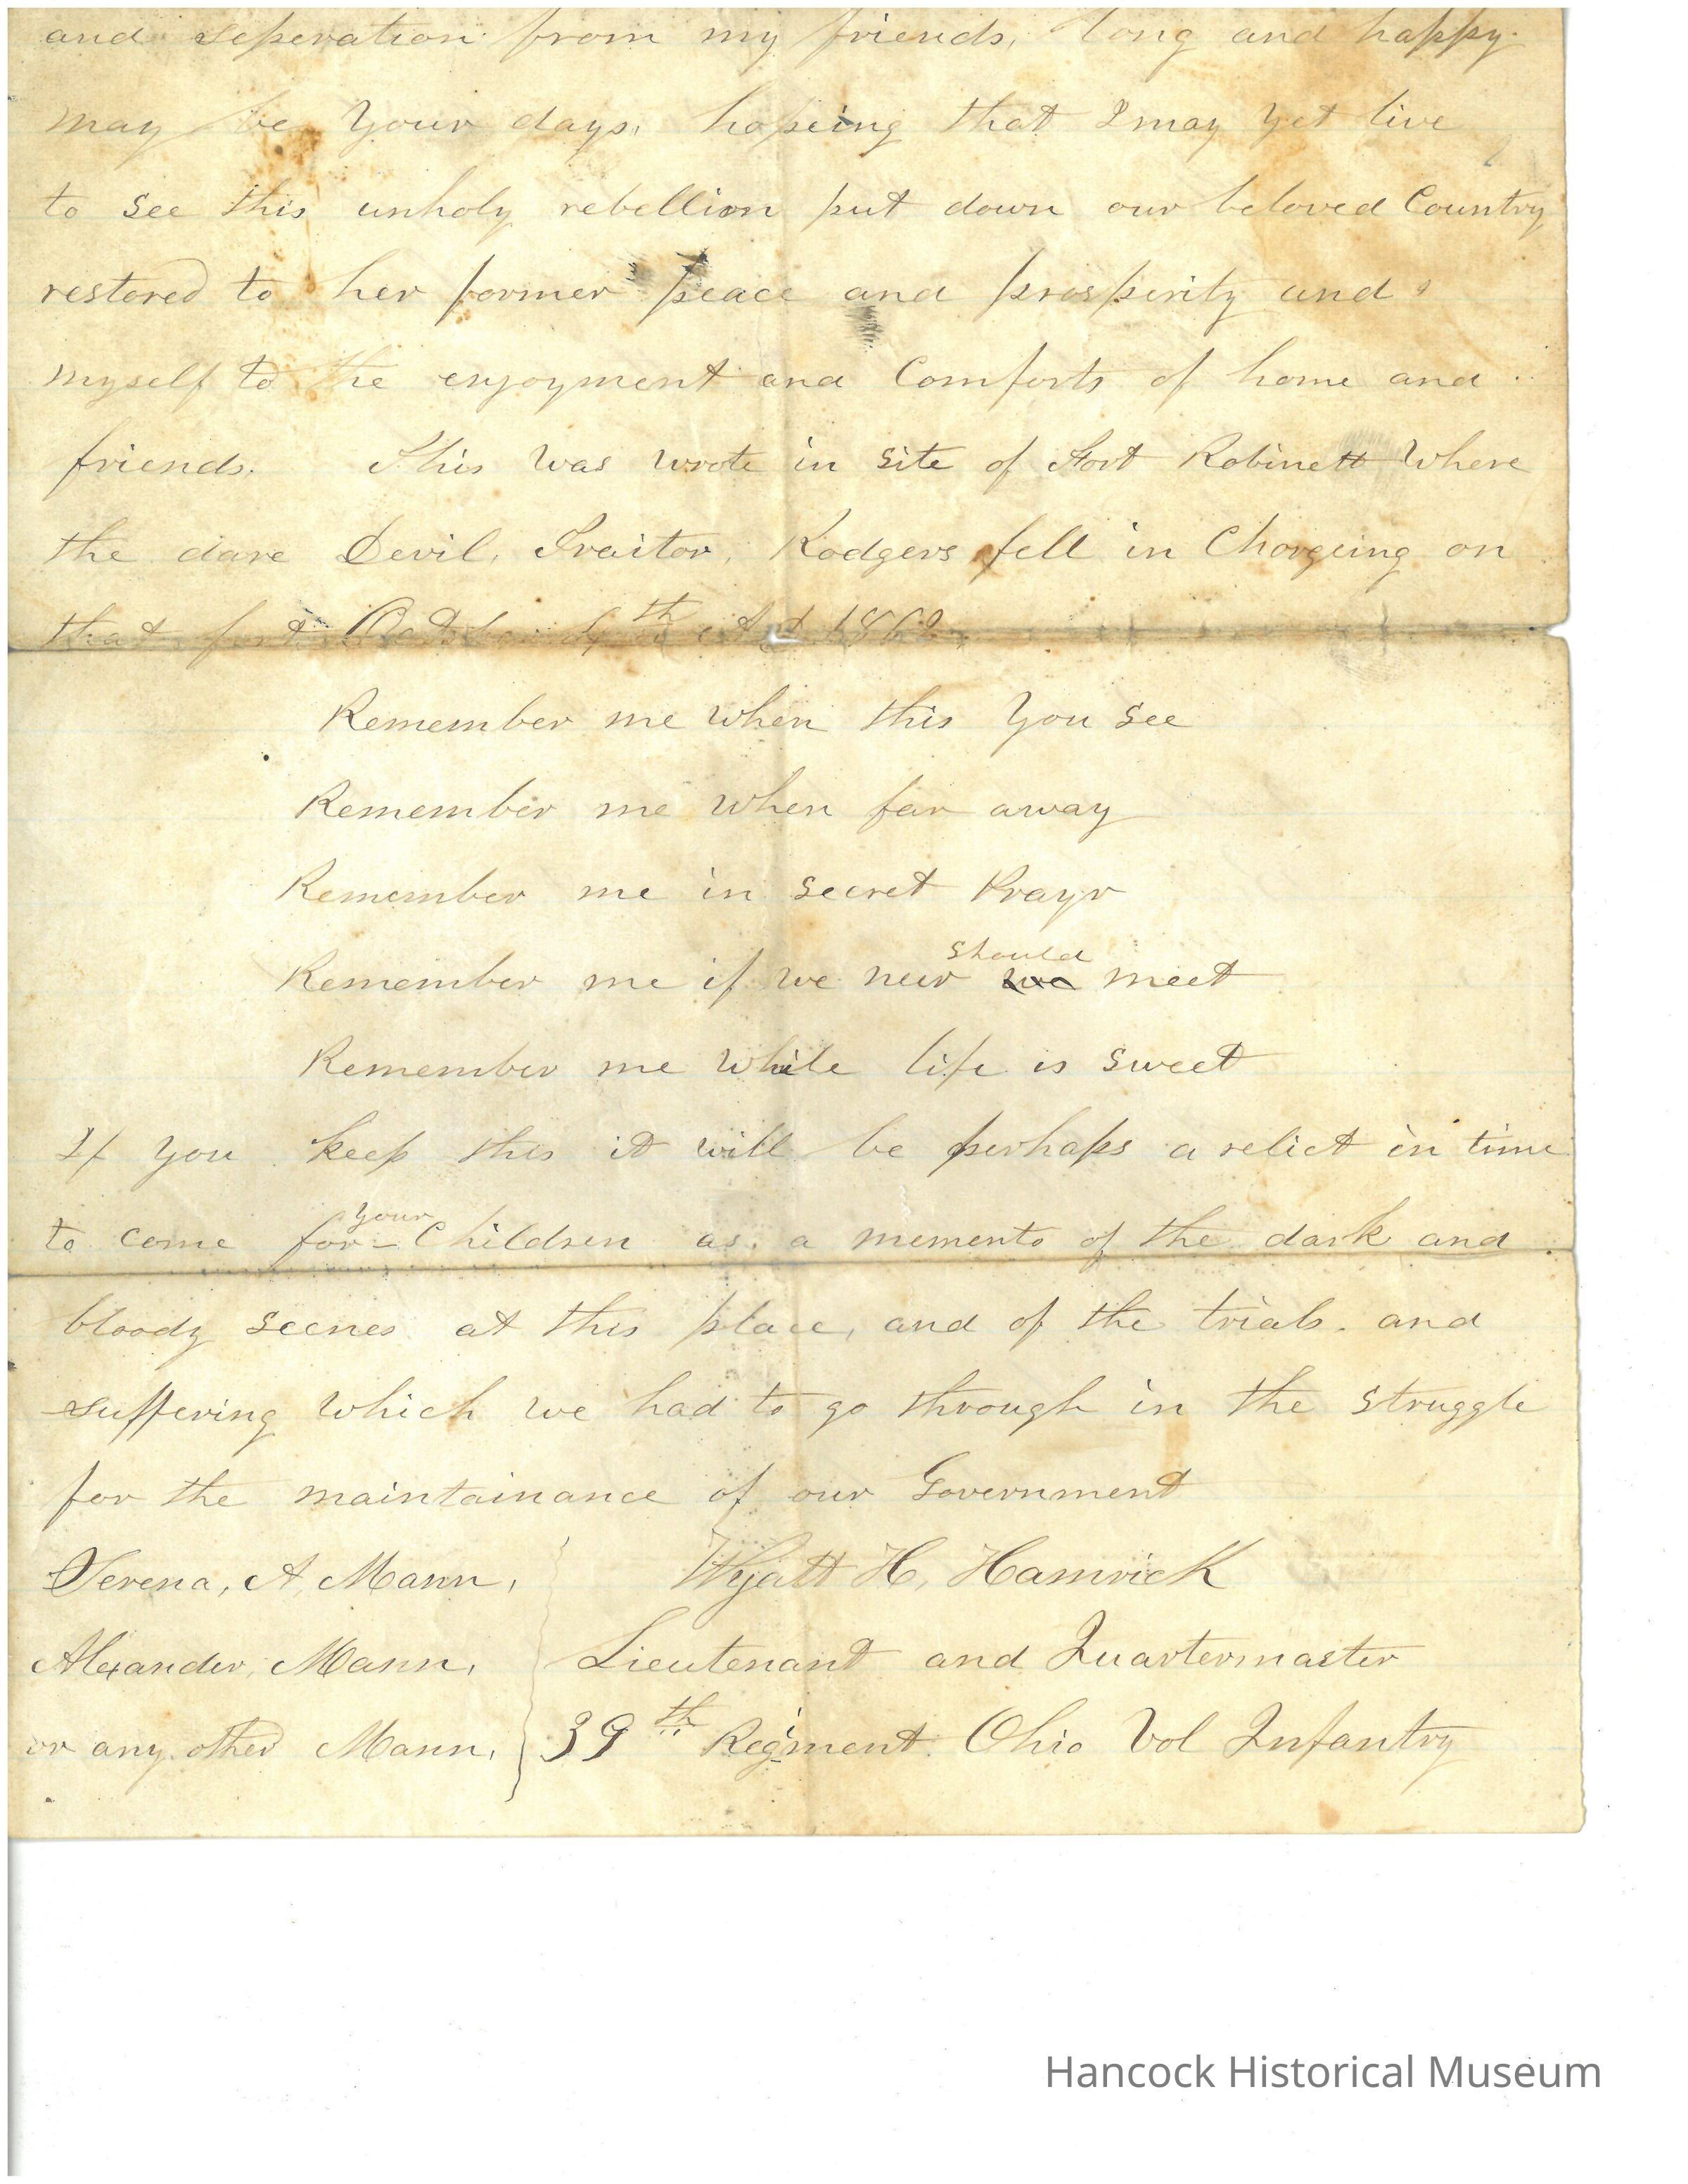 and seperation from my friends, long and happy
may be your days, hopeing that I may yet live
to see this unholy rebellion put down our beloved Country
restored to her former peace and prosperity and
myself to the enjoyment and Comforts of home and
friends. This was wrote in site of Fort Robinett Where
the dare Devil, Traitor, Rodgers fell in Chargeing on
that fort October 4th A.D 1862
Remember me when this you see
Remember me when far away
Remember me in secret Prayr
should
Remember me if we never we meet
Remember me while life is sweet
If you keep this it will be perhaps a relict in time
your
to come for Children as a memento of the dark and
bloody scenes at this place, and of the trials and
suffering which we had to go through in the struggle
for the maintainance of our Government
Serena, A, Mann, Wyatt H, Hamrick
Alexander, Mann, Lieutenant and Quartermaster
or any other Mann, 39th Regiment Ohio Vol Infantry
Hancock Historical Museum